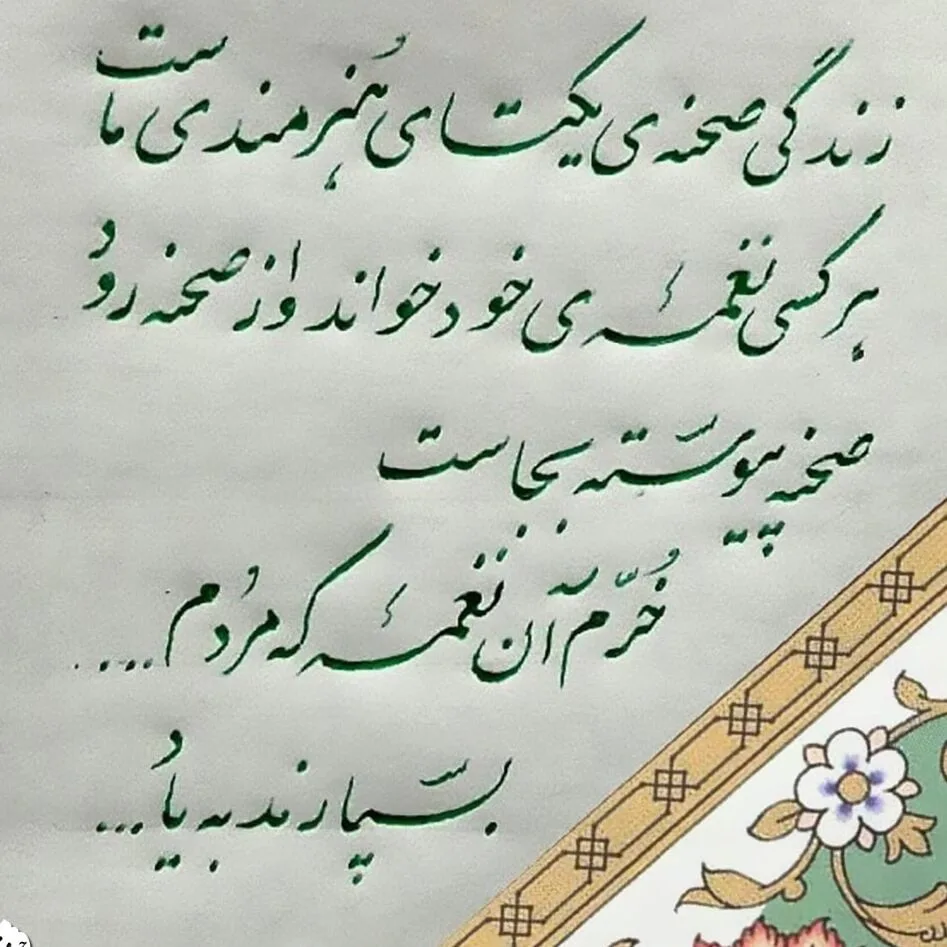 زندگی صحنه‌ی یکتای هُنرمندی ماست
هر کسی نغمهٔ‌ی خود خواند و از صحنه رودُ
صحنه پیوسته بجاست
خُرّم آن نغمهٔ که مردُم ....
بسپارند به یادُ ...